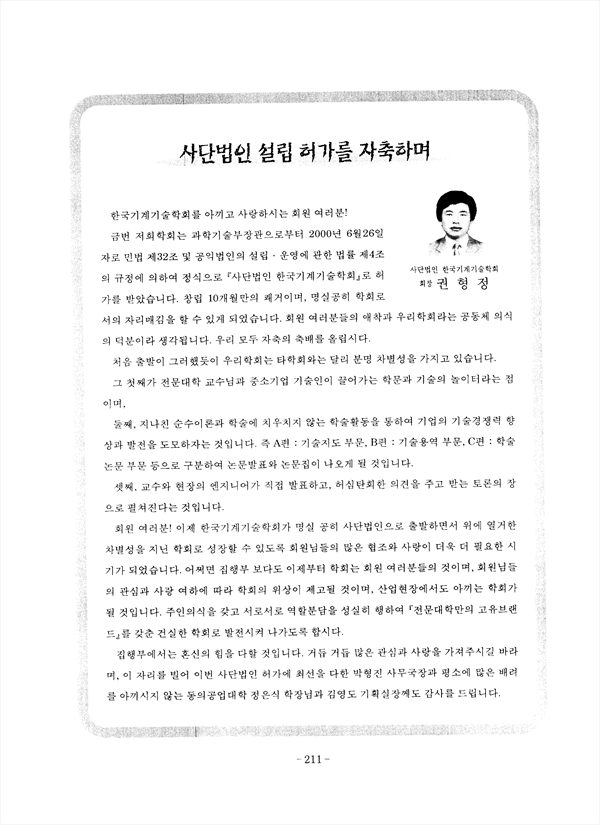 사단법인 설립 허가를 자축하며
한국기계기술학회를 아끼고 사랑하시는 회원 여러분!
금번 저희학회는 과학기술부장관으로부터 2000년 6월26일
자로 민법 제32조 및 공익법인의 설립·운영에 관한 법률 제4조
의 규정에 의하여 정식으로 『사단법인 한국기계기술학회』로 허
가를 받았습니다. 창립 10개월만의 쾌거이며, 명실공히 학회로
서의 자리매김을 할 수 있게 되었습니다. 회원 여러분들의 애착과 우리학회라는 공동체 의식
의 덕분이라 생각됩니다. 우리 모두 자축의 축배를 올립시다.
사단법인 한국기계기술학회
회장 권 형 정
처음 출발이 그러했듯이 우리학회는 타학회와는 달리 분명 차별성을 가지고 있습니다.
그 첫째가 전문대학 교수님과 중소기업 기술인이 끌어가는 학문과 기술의 놀이터라는 점
이며,
둘째, 지나친 순수이론과 학술에 치우치지 않는 학술활동을 통하여 기업의 기술경쟁력 향
상과 발전을 도모하자는 것입니다. 즉 A편 : 기술지도 부문, B편 : 기술용역 부문, C편 : 학술
논문 부문 등으로 구분하여 논문발표와 논문집이 나오게 될 것입니다.
셋째, 교수와 현장의 엔지니어가 직접 발표하고, 허심탄회한 의견을 주고 받는 토론의 장
으로 펼쳐진다는 것입니다.
회원 여러분! 이제 한국기계기술학회가 명실 공히 사단법인으로 출발하면서 위에 열거한
차별성을 지닌 학회로 성장할 수 있도록 회원님들의 많은 협조와 사랑이 더욱 더 필요한 시
기가 되었습니다. 어쩌면 집행부 보다도 이제부터 학회는 회원 여러분들의 것이며, 회원님들
의 관심과 사랑 여하에 따라 학회의 위상이 제고될 것이며, 산업현장에서도 아끼는 학회가
될 것입니다. 주인의식을 갖고 서로서로 역할분담을 성실히 행하여 『전문대학만의 고유브랜
드』를 갖춘 건실한 학회로 발전시켜 나가도록 합시다.
집행부에서는 혼신의 힘을 다할 것입니다. 거듭 거듭 많은 관심과 사랑을 가져주시길 바라
며, 이 자리를 빌어 이번 사단법인 허가에 최선을 다한 박형진 사무국장과 평소에 많은 배려
를 아끼시지 않는 동의공업대학 정은식 학장님과 김영도 기획실장께도 감사를 드립니다.
- 211 -